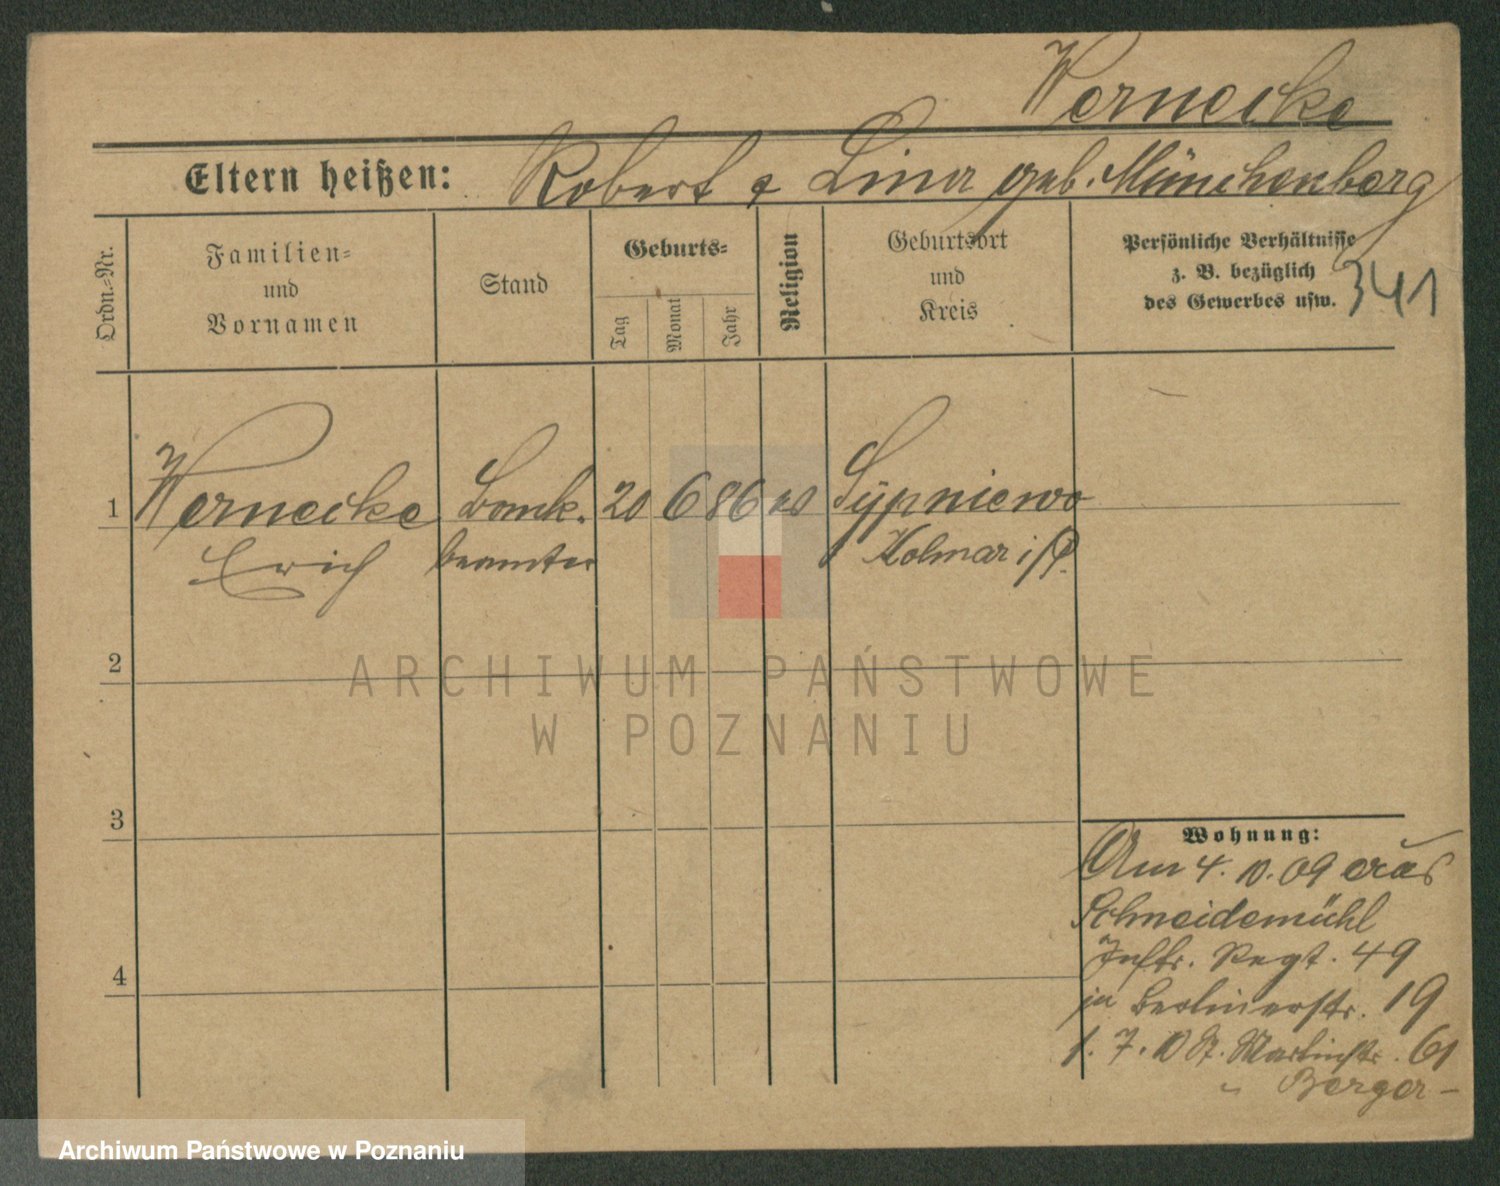 Wernecke
Eltern heißen: Robert & Lina geb. Münchenberg
Ordn.=Nr.
Familien=
und
Vornamen
Stand
Geburts=
Tag
Monat
Jahr
Religion
Geburtsort
und
Kreis
Persönliche Verhältnisse
z. B. bezüglich
des Gewerbes usw.
341
1 Wernecke Bank. 20 6 86 Sypniewo
Erich beamter Kolmar i/P.
2
3
4
Wohnung:
Am 4. 10. 09 aus
Schneidemühl
Inftr. Regt. 49
in Berlinerstr. 19
1. 7. 10 St. Martinstr. 61
" Berger -
ARCHIWUM PAŃSTWOWE
W POZNANIU
Archiwum Państwowe w Poznaniu